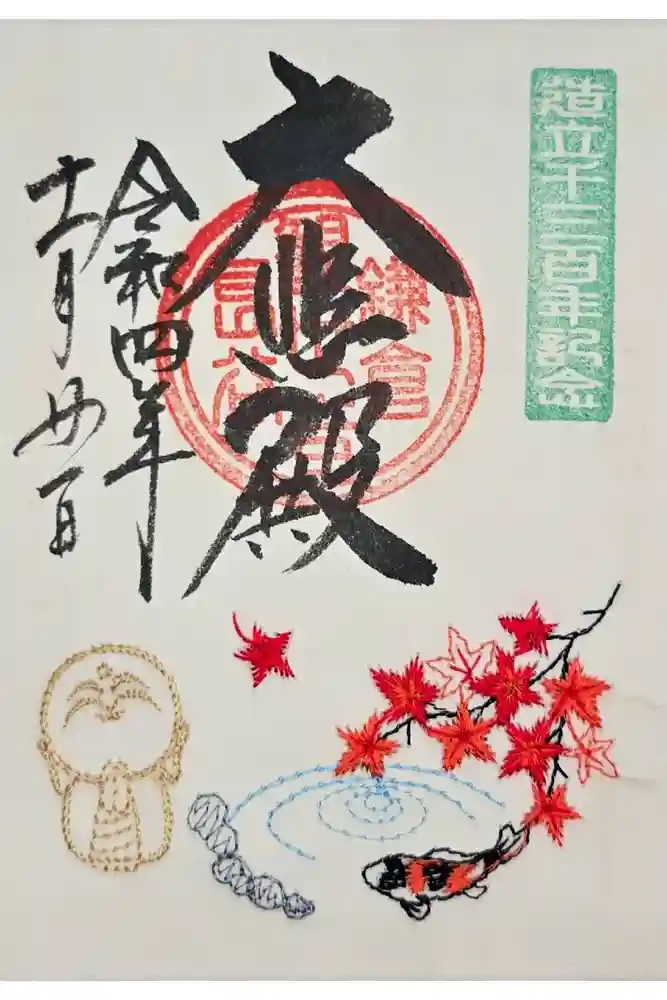 造立千三百年記念
大悲殿
鎌倉
長谷
令和四年
十一月廿一日